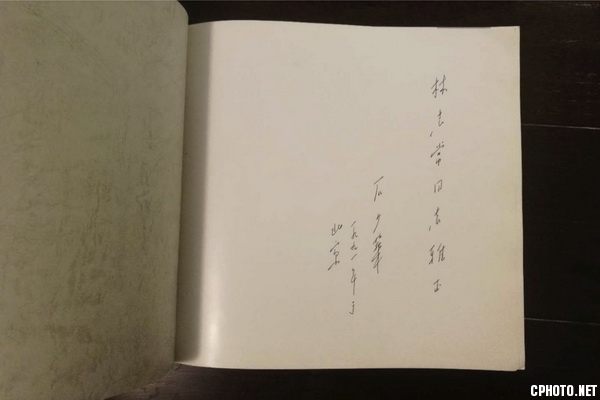 林志常同志雅正
石少华
一九九一年于
北京
CPHOTO.NET